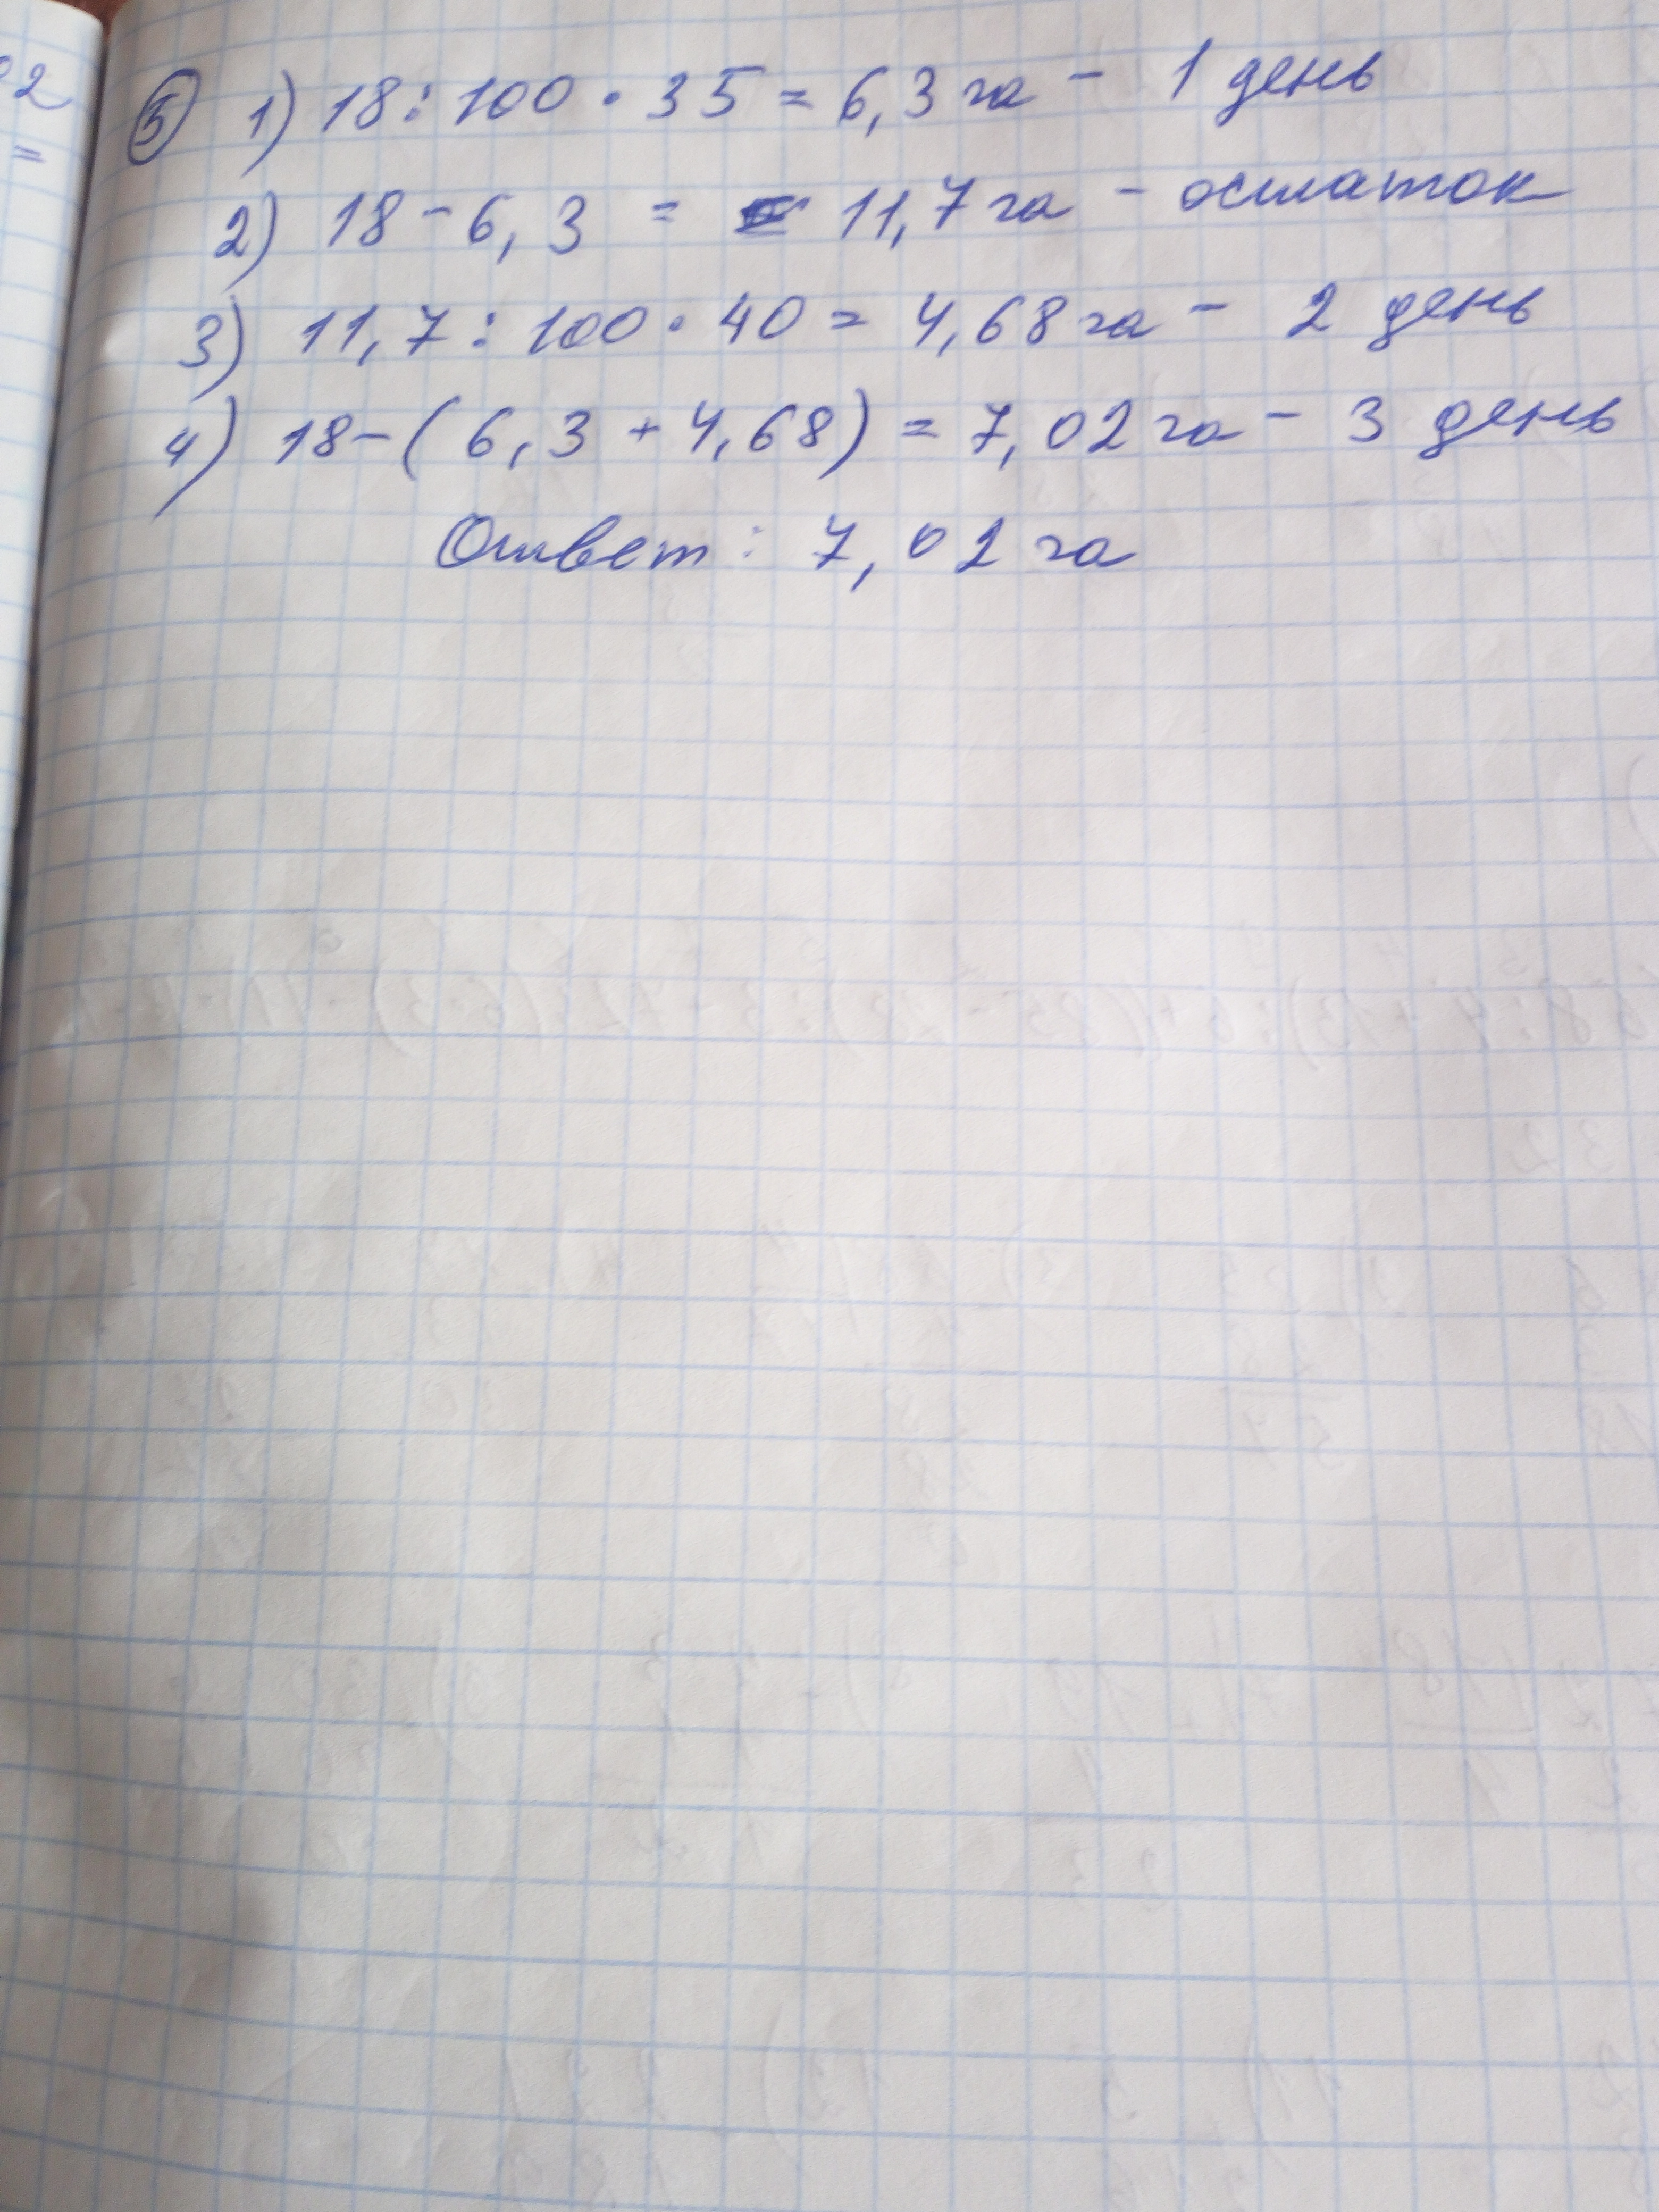 ⑤ 1) 18 : 100 · 35 = 6,3 га - 1 день
2) 18 - 6,3 = 11,7 га - остаток
3) 11,7 : 100 · 40 = 4,68 га - 2 день
4) 18 - (6,3 + 4,68) = 7,02 га - 3 день
Ответ : 7,02 га